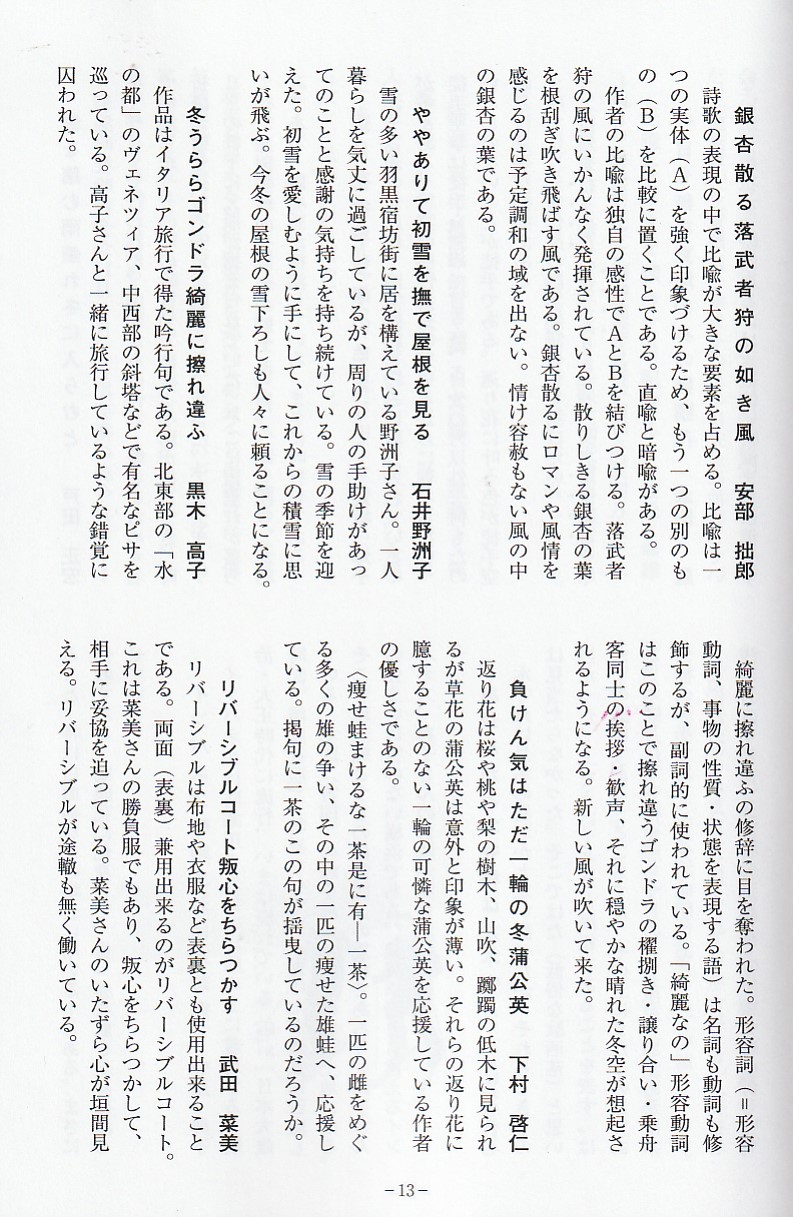 銀杏散る落武者狩の如き風　安部　拙郎
詩歌の表現の中で比喩が大きな要素を占める。比喩は一
つの実体（A）を強く印象づけるため、もう一つの別のも
の（B）を比較に置くことである。直喩と暗喩がある。
作者の比喩は独自の感性でAとBを結びつける。落武者
狩の風にいかんなく発揮されている。散りしきる銀杏の葉
を根刮ぎ吹き飛ばす風である。銀杏散るにロマンや風情を
感じるのは予定調和の域を出ない。情け容赦もない風の中
の銀杏の葉である。
ややありて初雪を撫で屋根を見る　石井野洲子
雪の多い羽黒宿坊街に居を構えている野洲子さん。一人
暮らしを気丈に過ごしているが、周りの人の手助けがあっ
てのことと感謝の気持ちを持ち続けている。雪の季節を迎
えた。初雪を愛しむように手にして、これからの積雪に思
いが飛ぶ。今冬の屋根の雪下ろしも人々に頼ることになる。
冬うららゴンドラ綺麗に擦れ違ふ　黒木　高子
作品はイタリア旅行で得た吟行句である。北東部の「水
の都」のヴェネツィア、中西部の斜塔などで有名なピサを
巡っている。高子さんと一緒に旅行しているような錯覚に
囚われた。
綺麗に擦れ違ふの修辞に目を奪われた。形容詞（＝形容
動詞、事物の性質・状態を表現する語）は名詞も動詞も修
飾するが、副詞的に使われている。「綺麗なの」形容動詞
はこのことで擦れ違うゴンドラの櫂捌き・譲り合い・乗舟
客同士の挨拶・歓声、それに穏やかな晴れた冬空が想起さ
れるようになる。新しい風が吹いて来た。
負けん気はただ一輪の冬蒲公英　下村　啓仁
返り花は桜や桃や梨の樹木、山吹、躑躅の低木に見られ
るが草花の蒲公英は意外と印象が薄い。それらの返り花に
臆することのない一輪の可憐な蒲公英を応援している作者
の優しさである。
〈痩せ蛙まけるな一茶是に有―一茶〉。一匹の雌をめぐ
る多くの雄の争い、その中の一匹の痩せた雄蛙へ、応援し
ている。掲句に一茶のこの句が揺曳しているのだろうか。
リバーシブルコート叛心をちらつかす　武田　菜美
リバーシブルは布地や衣服など表裏とも使用出来ること
である。両面（表裏）兼用出来るのがリバーシブルコート。
これは菜美さんの勝負服でもあり、叛心をちらつかして、
相手に妥協を迫っている。菜美さんのいたずら心が垣間見
える。リバーシブルが途轍も無く働いている。
－13－